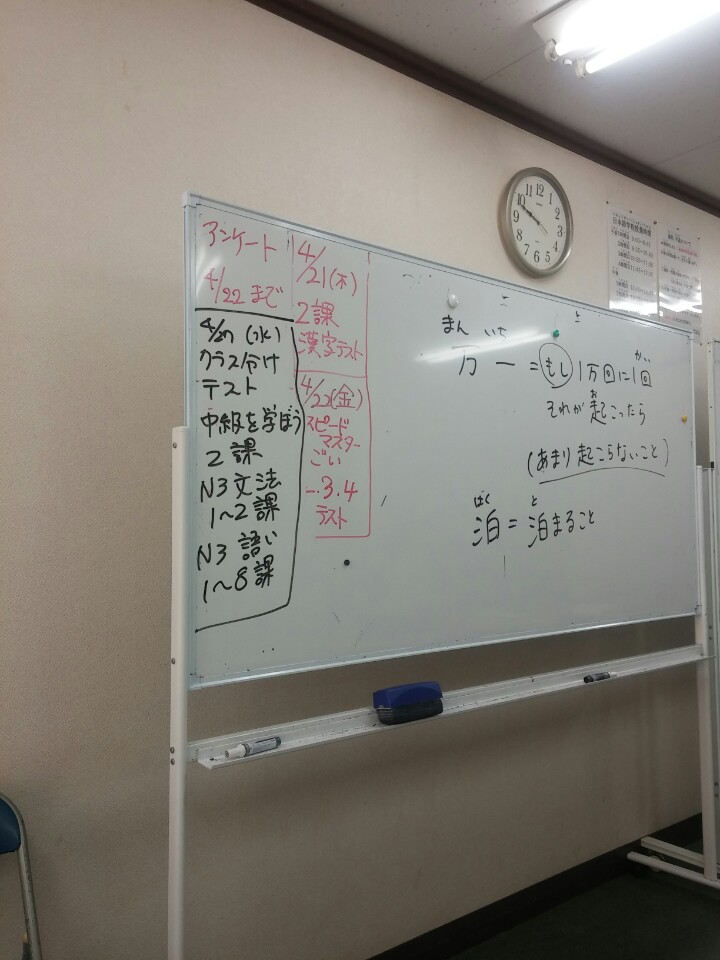 アンケート
4/22 まで
4/21(木)
2課
漢字テスト
4/22(金)
スピード
マスター
ごい
3.4
テスト
4/27 (水)
クラス分け
テスト
中級を学ぼう
2課
N3文法
1～2課
N3 語い
1～8課
まん いち
万一=もし1万回に1回
かい
それが起こったら
お
(あまり起こらないこと)
はく と
泊=泊まること
12
1
2
3
4
5
6
7
8
9
10
11